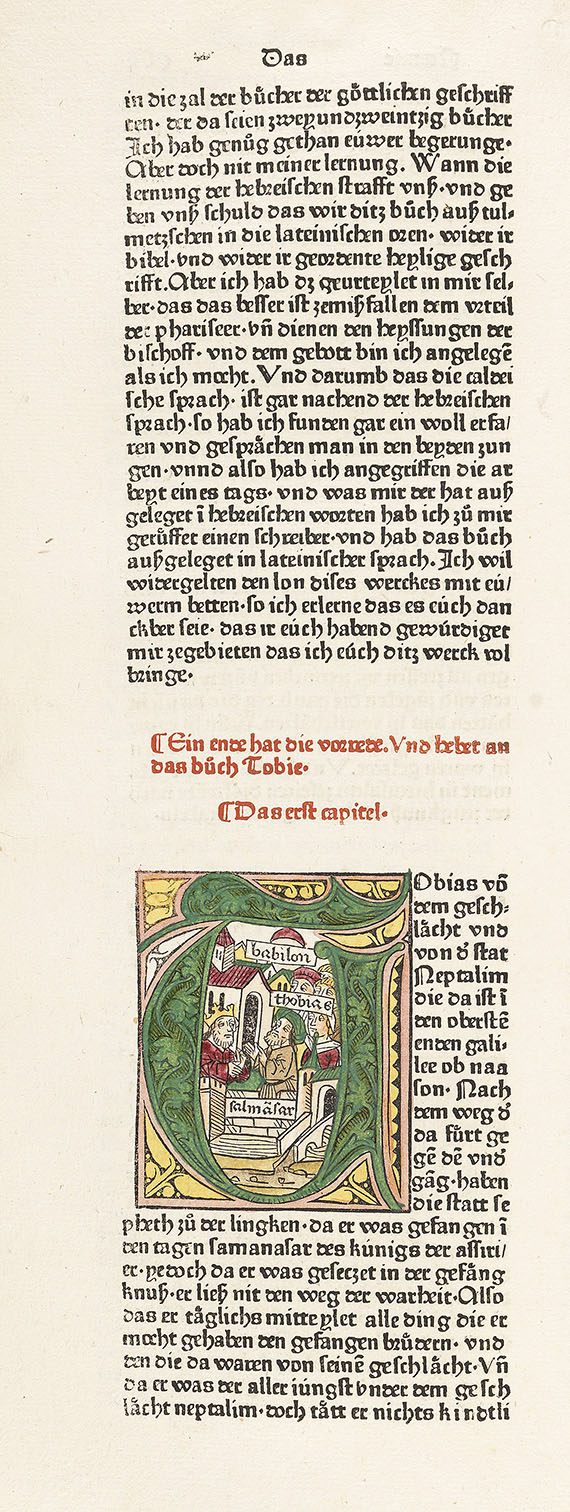 Das
in die zal der bu̍cher der go̍ttlichen geschriff
ten· der da seien zweyundzweintzig bu̍cher
Ich hab genůg gethan eúwer begerunge·
Aber doch nit meiner lernung. Wann die
lernung der hebreischen strafft vnß·vnd ge
ben vnß schuld das wir ditz bůch auß tul⸗
metzschen in die lateinischen oren· wider ir
bibel·vnd wider ir geordente heylige gesch
rifft.Aber ich hab dz geurteylet in mir sel⸗
ber·das das besser ist zemißfallen dem vrteil
der phariseer·vñ dienen den heyssungen der
bischoff· vnd dem gebott bin ich angelegē
als ich mocht.Vnd darumb das die caldei
sche sprach· ist gar nachend der hebreischen
sprach·so hab ich funden gar ein woll erfa/
ren vnd gesprȧchen man in den beyden zun
gen·vnnd also hab ich angegriffen die ar
beyt eines tags· vnd was mir der hat auß
geleget ī hebreischen worten hab ich zů mir
gerůffet einen schreiber·vnd hab das bůch
außgeleget in lateinischer sprach.Ich wil
widergelten den lon dises werckes mit eú/
werm betten·so ich erlerne das es eúch dan
ckber seie· das ir eúch habend gewúrdiget
mir zegebieten das ich eúch ditz werck vol
bringe·
¶Ein ende hat die vorrede.Vnd hebet an
das bůch Tobie·
¶Das erst capitel·
babilon
thobias
salmāsar
TObias vō
dem gesch⸗
lȧcht vnd
von d̓ stat
Neptalim
die da ist ī
den oberstē
enden gali⸗
lee ob naa
son· Nach
dem weg d̓
da fu̍rt ge
gē dē vnd̓
gāg·haben
die statt se
pheth zů der lingken·da er was gefangen ī
den tagen samanasar des kúnigs der assiri/
er·yedoch da er was geseczet in der gefȧng
knuß·er ließ nit den weg der warheit·Also
das er tȧglichs mitteylet alle ding die er
mocht gehaben den gefangen bru̍dern· vnd
den die da waren von seinē geschlȧcht·Vñ
da er was der aller iúngst vnder dem gesch
lȧcht neptalim·doch tȧtt er nichts kindtli